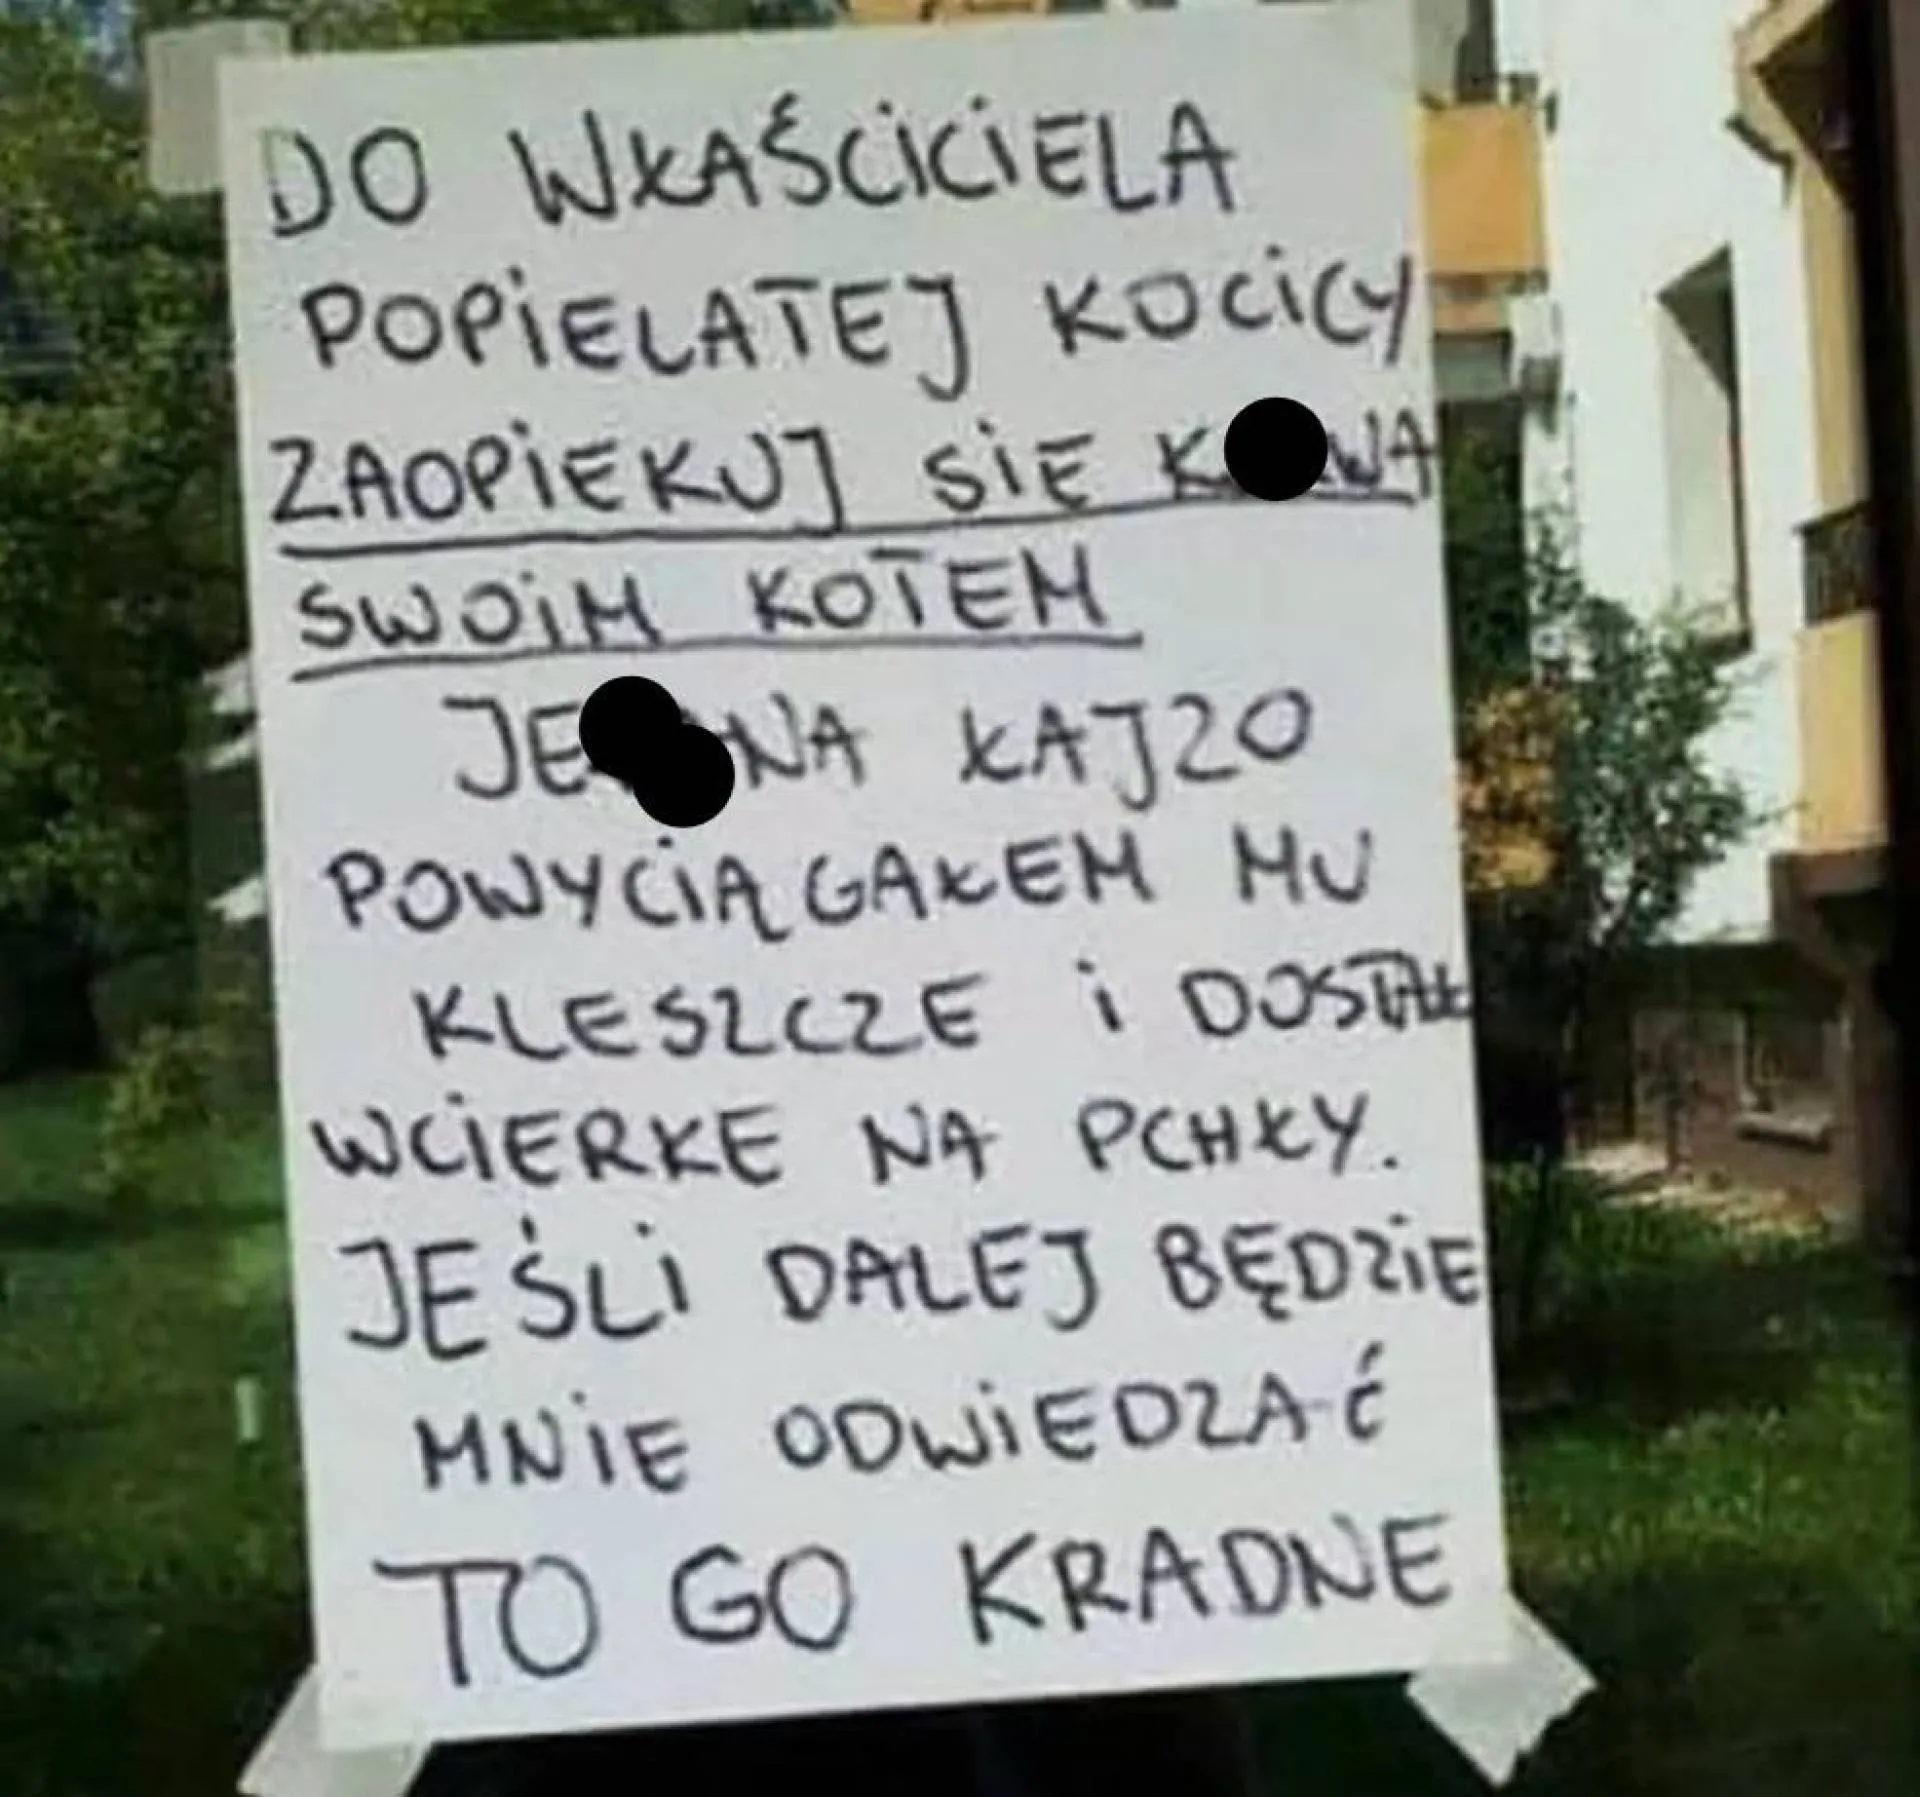 DO WŁAŚCICIELA
POPIELATEJ KOCICY
ZAOPIEKUJ SIE K WA
SWOIM KOTEM
JE NA ŁAJZO
POWYCIĄGAŁEM MU
KLESZCZE i DOSTAŁ
WCIERKE NA PCHŁY.
JEŚLI DALEJ BĘDZIE
MNIE ODWIEDZAĆ
TO GO KRADNE